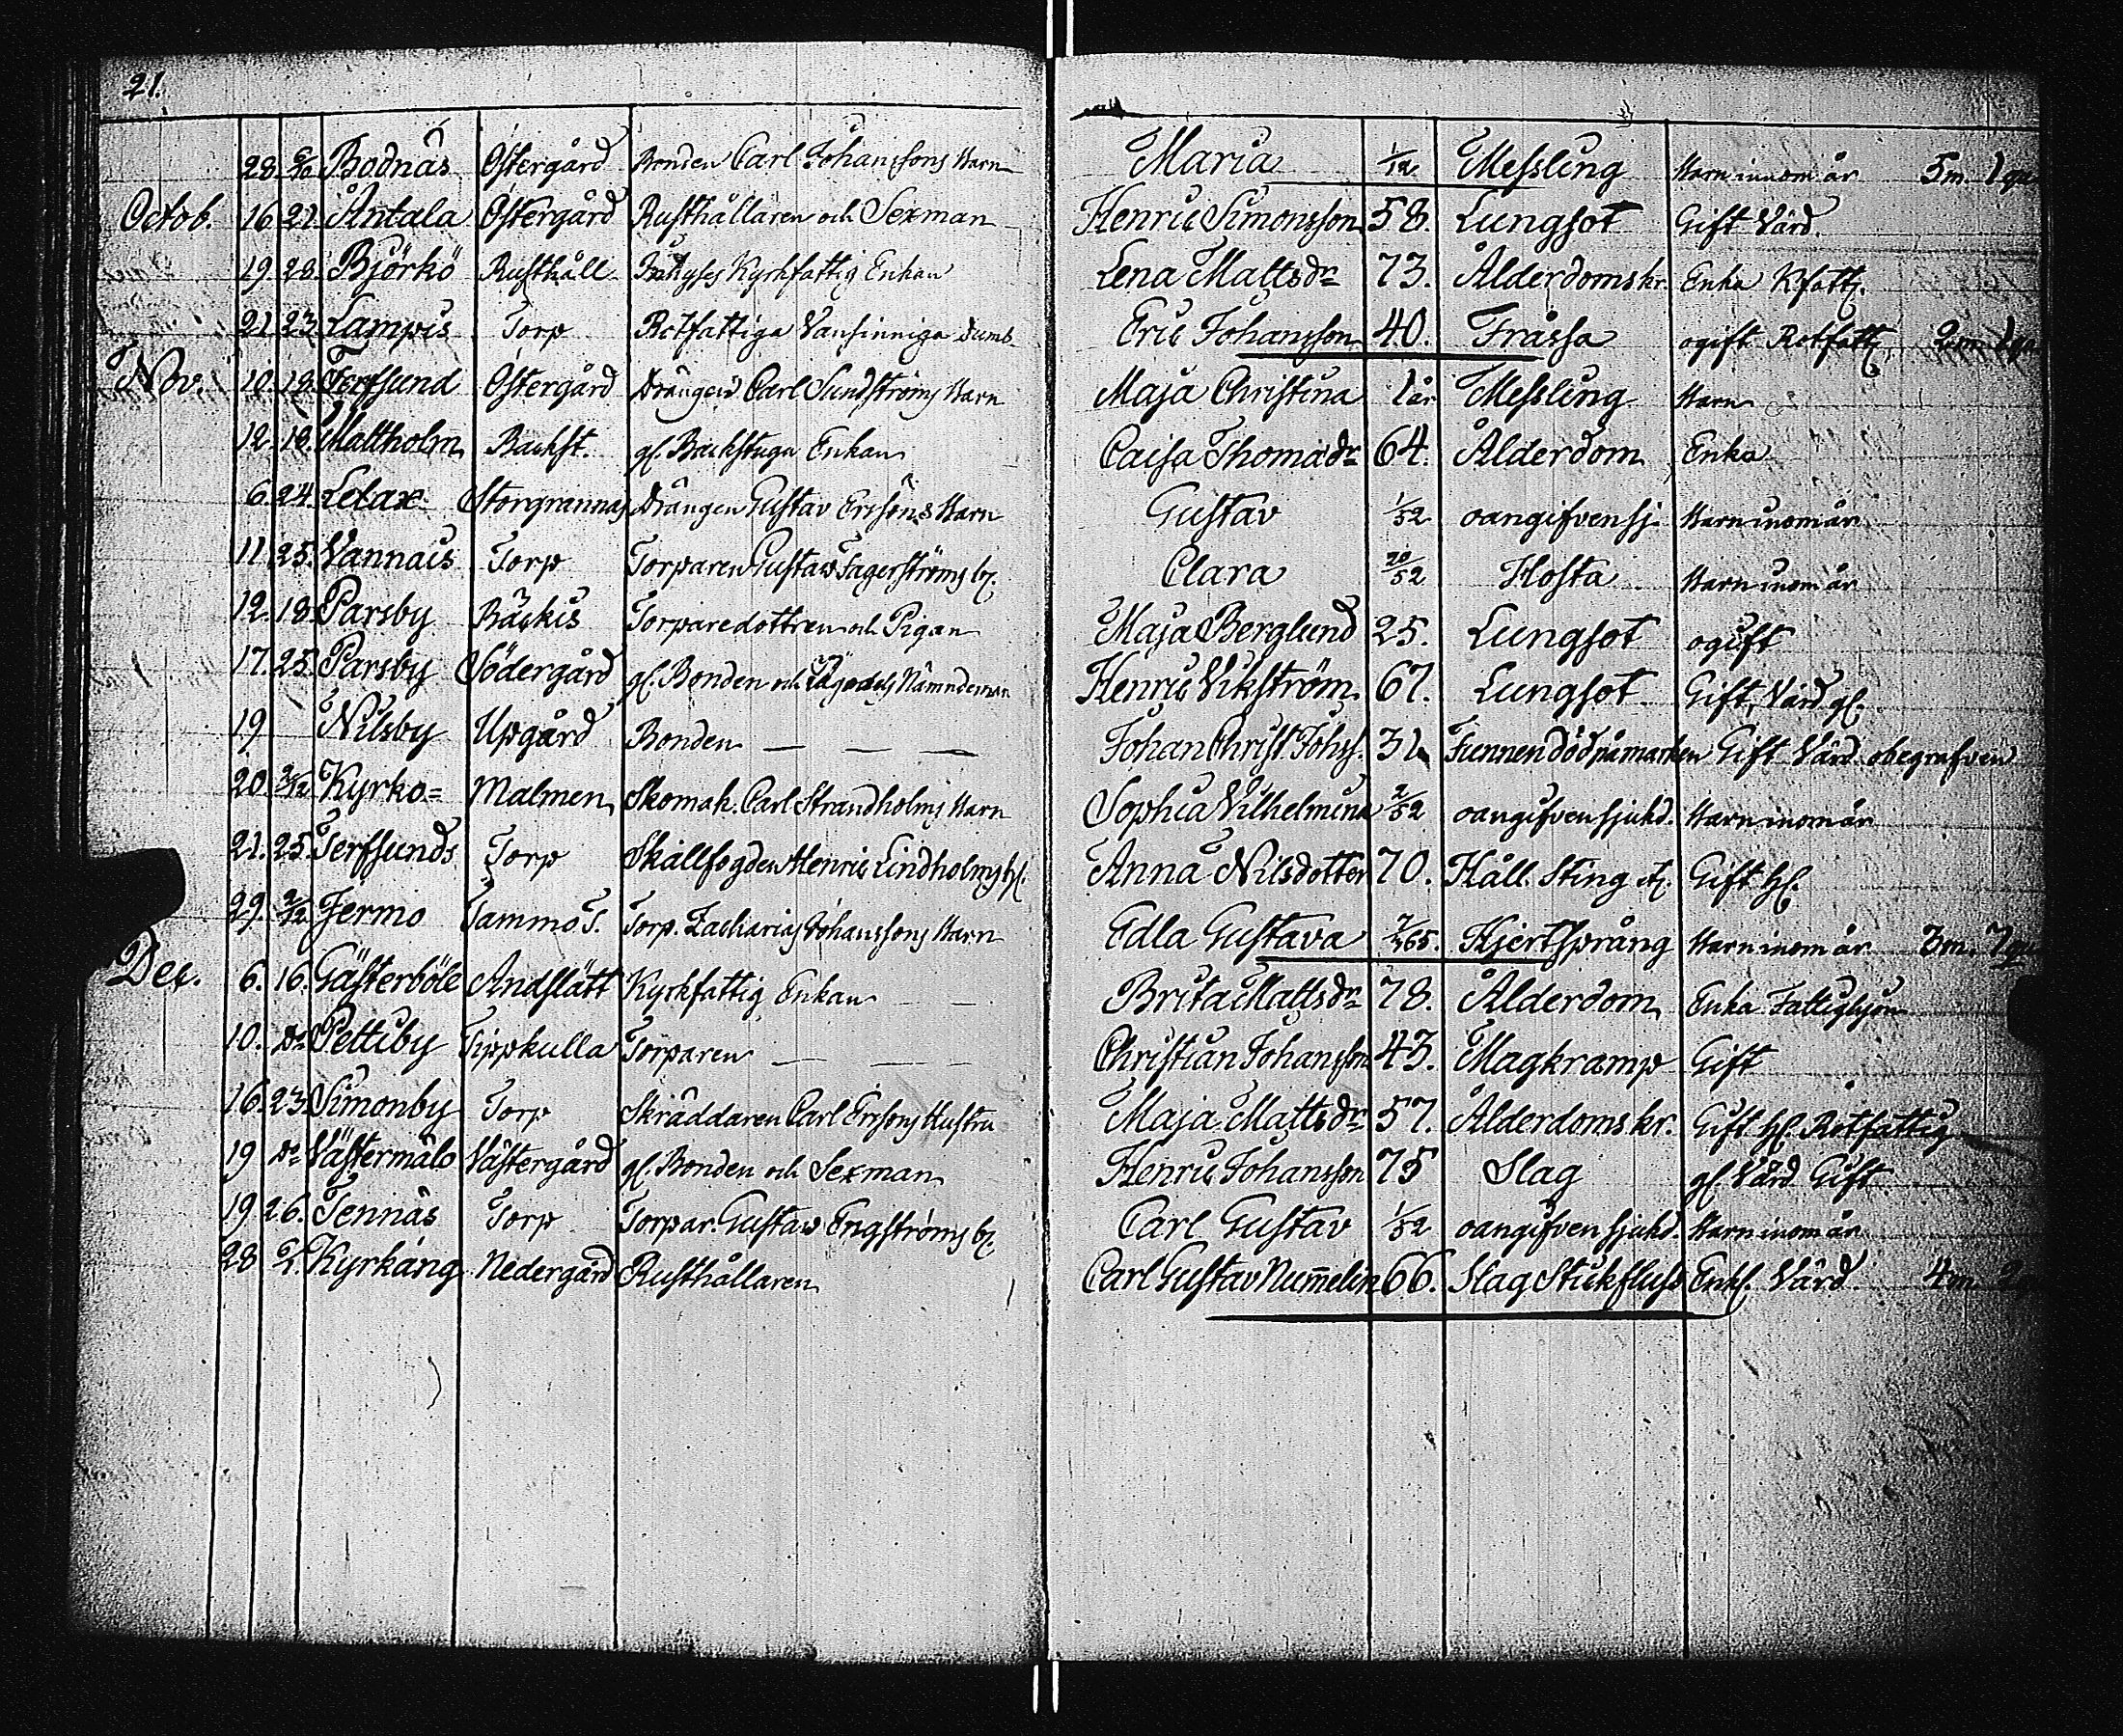 21.
28. Bodnäs Östergård Bonden Carl Johanssons Barn Maria 1/12 Messling Barn innom år 5m. 1
Octob. 16. 21. Åntala Östergård Rusthållaren och Sexman Henric Simonsson 58. Lungsot Gift Värd.
19. 28. Björkö Rusthåll Kyrkfattig Enkan Lena Mattsdr 73. Ålderdomskr. Enka Kfatt.
21. 23. Lampis Torp Rotfattiga Vansinniga dumb Eric Johansson 40. Fråssa ogift Rotfatt. 2m
Nov. 10. 18. Terfsund Östergård Drängens Carl Sundströms Barn Maja Christina 1 år Messling Barn
12. 18. Mattholm Backst. gl. Backstugu Enkan Caisa Thomadr 64. Ålderdom Enka
6. 24. Lelax Storgrannas Drängen Gustav Erssons Barn Gustav 1/52 oangifven sj. Barn inom år
11. 25. Vannais Torp Torparen Gustav Fagerströms b. Clara 20/52 Hosta Barn inom år
12. 18. Parsby Bäckis Torparedottren och Pigan Maja Berglund 25. Lungsot ogift
17. 25. Parsby Södergård gl. Bonden och Nämndeman Henric Vikström 67. Lungsot Gift, Värd gl.
19 Nilsby Upgård Bonden — — — Johan Christ. Johss. 31 Funnen död på marken Gift Värd obegrafven
20. 2/12 Kyrko= Malmen Skomak. Carl Strandholms Barn Sophia Vilhelmina 2/52 oangifven sjukd. Barn inom år
21. 25. Terfsunds Torp Skallfogden Henric Lindholms h. Anna Nilsdotter 70. Håll. Sting Gift h.
29. 2/12 Jermo Tammo T. Torp. Zacharias Johanssons Barn Edla Gustava 7/365. Hjertsprång Barn inom år. 3m. 7
Dec. 6. 16. Gästerböle Andslätt Kyrkfattig Enkan Brita Mattsdr 78. Ålderdom Enka Fattighjon
10. Do Pettiby Tippkulla Torparen — — Christian Johansson 43. Magkramp Gift
16. 23. Simonby Torp Skräddaren Carl Erssons Hustru Maja Mattsdr 57. Ålderdomskr. Gift h. Rotfattig
19 Do Västermålo Västergård gl. Bonden och Sexman Henric Johansson 75 Slag gl. Värd Gift
19 26. Tennäs Torp Torpar. Gustaw Engströms b. Carl Gustav 1/52 oangifven sjukd. Barn inom år
28 2. Kyrkäng Nedergård Rusthållaren Carl Gustav Num̅elin 66. Slag Stickfluss Enkl. Värd. 4m